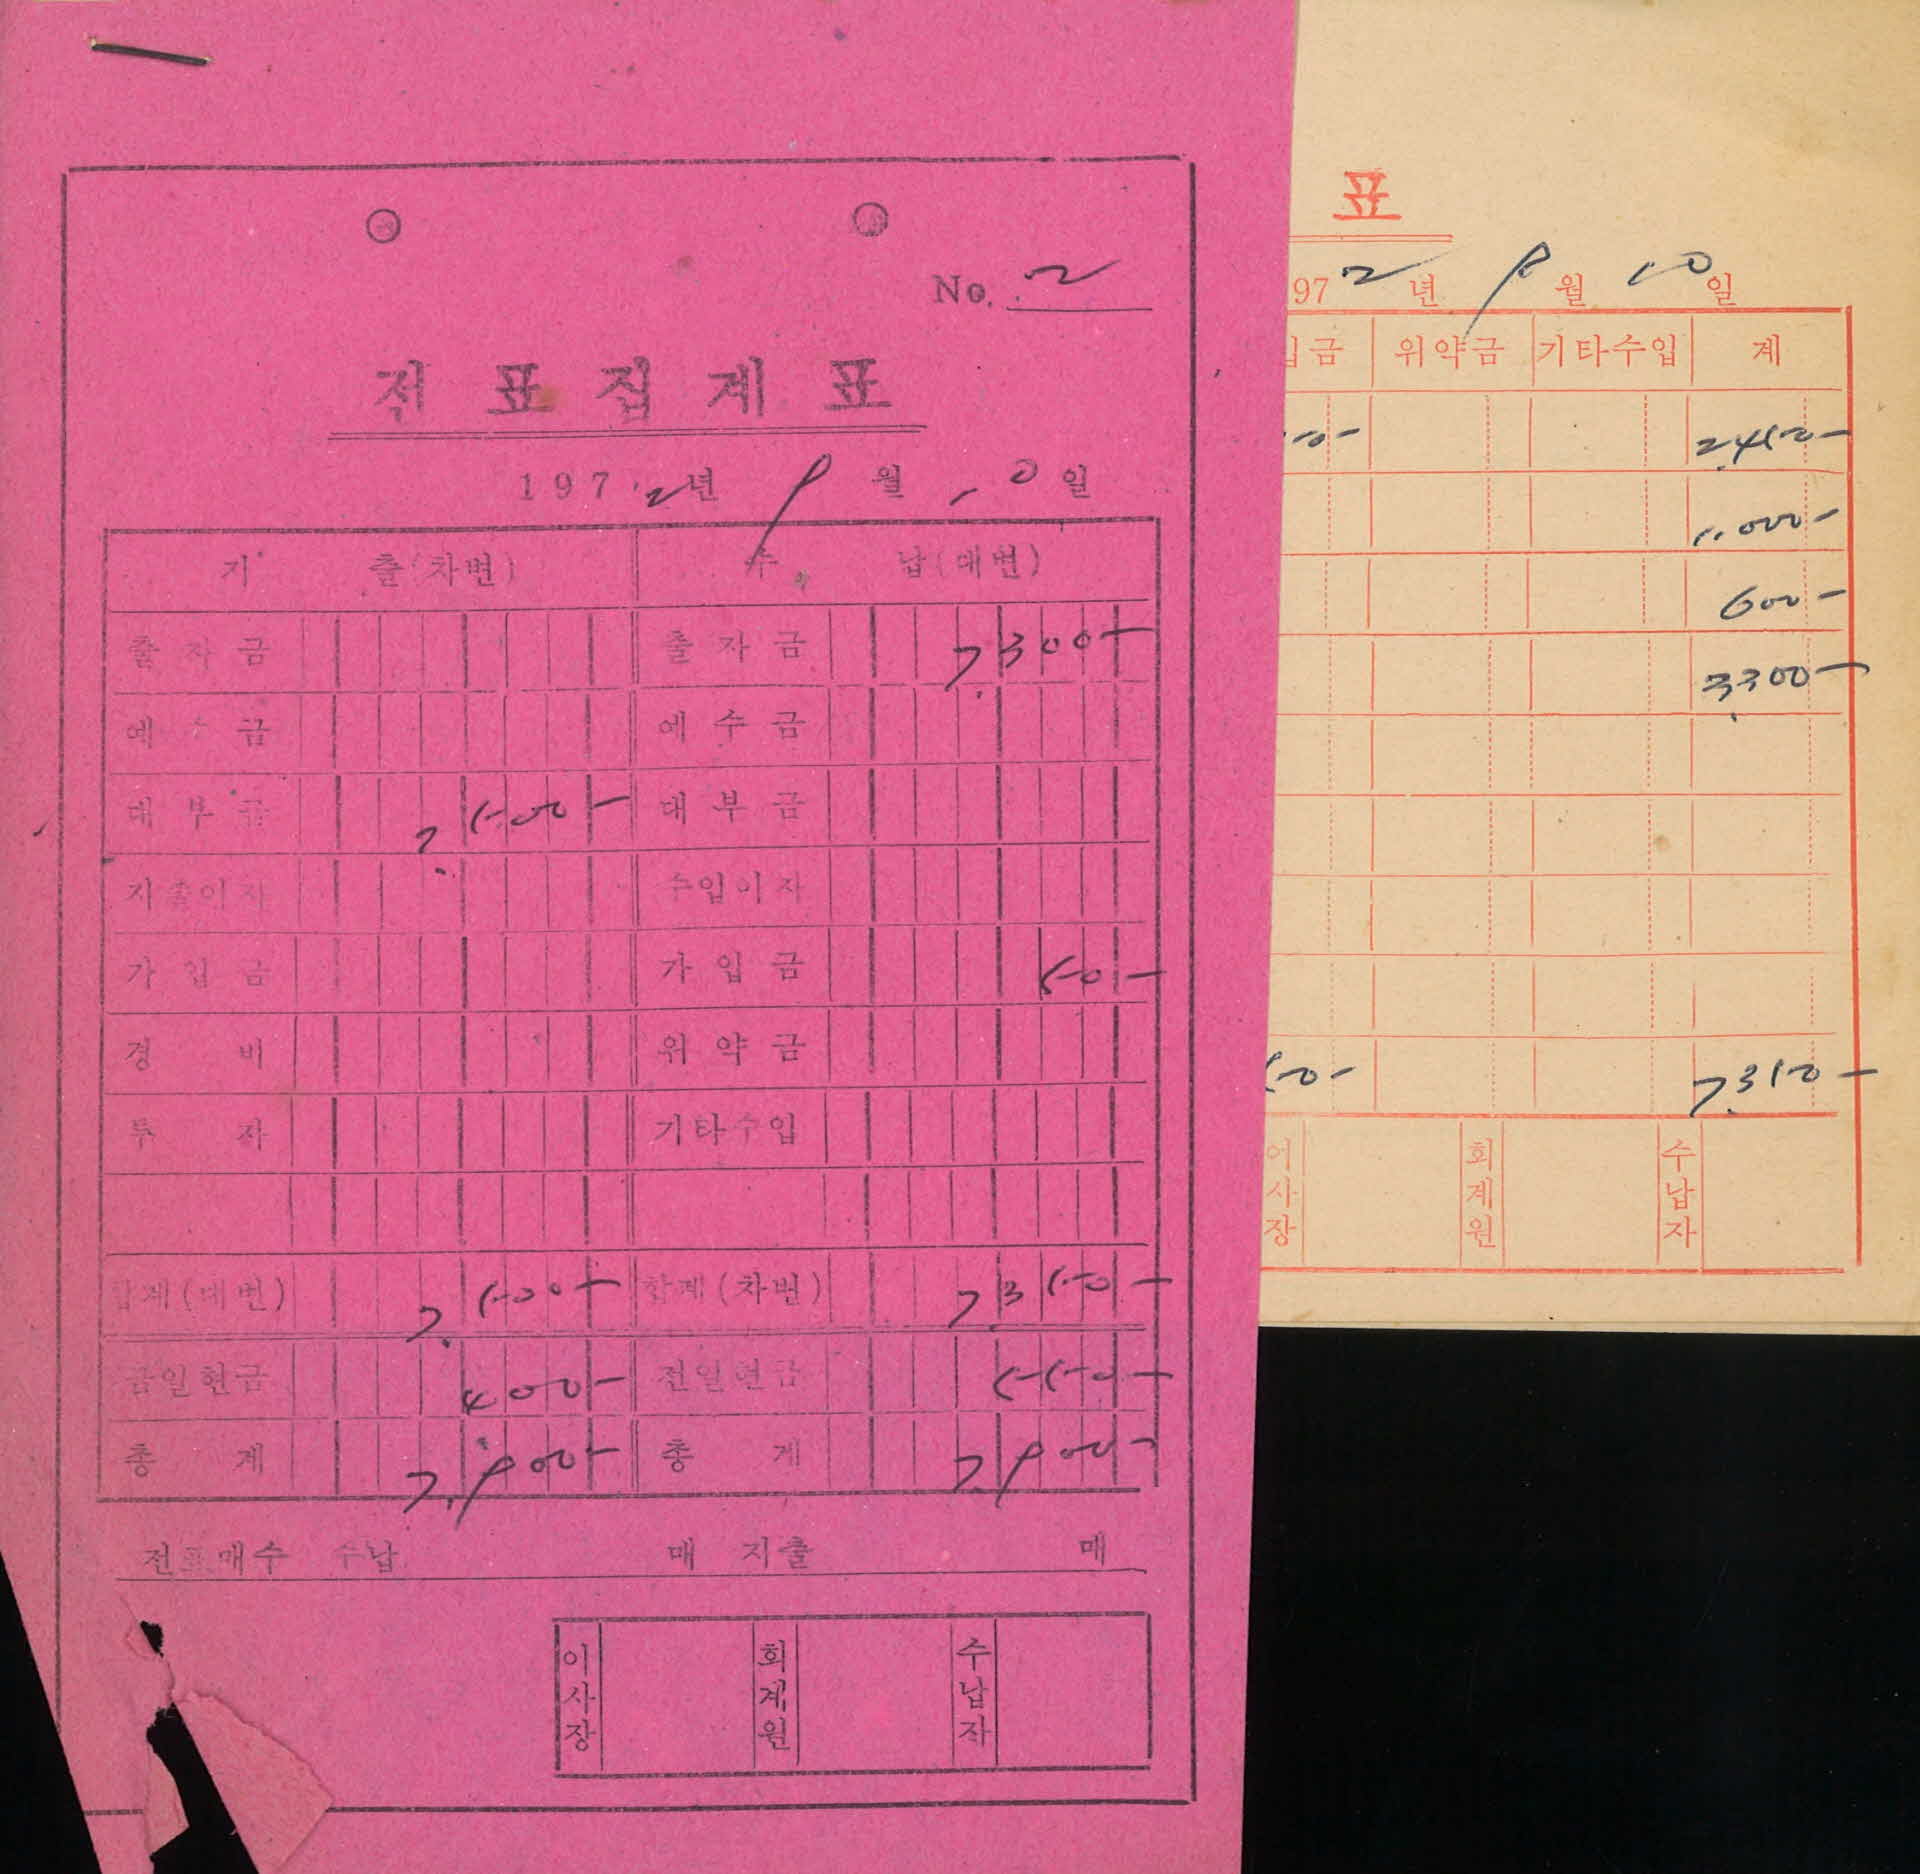 No. 2
전표집계표
1972년 9월 10일
지 출(차변) 수 납(대변)
출자금 출자금 7,300-
예수금 예수금
대부금 7,500- 대부금
지출이자 수입이자
가입금 가입금 50-
경비 위약금
투자 기타수입
합계(대변) 7,500- 합계(차변) 7,350-
금일현금 400- 전일현금 550-
총계 7,900- 총계 7,900-
전표매수 수납 매 지출 매
이사장 회계원 수납자
표
972년 9월 10일
입금 위약금 기타수입 계
50- 2,450-
1,000-
600-
3,300-
50- 7,350-
이사장 회계원 수납자